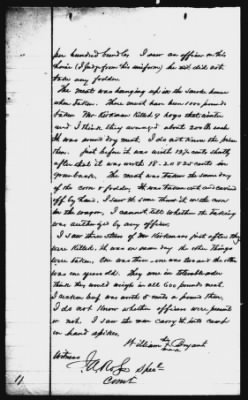 per hundred bundles I saw an officer on his
horse (I judge from his uniform) he did not
take any fodder.
The meat was hanging up in the smoke house
when taken. There must have been 1000 pounds
taken Mr. Kirkman killed 9 hogs that winter
and I think they averaged about 200 lb each
It was sound dry meat. I do not know the price
then. Just before it was worth 12½ cents shortly
after that it was worth 18. 20 & 25 cents in
greenback. The meat was taken the same day
of the corn & fodder. It was taken out and carried
off by hand. I saw the same throw it with corn
in the wagon, I cannot tell whether the taking
was authorized by any officer.
I saw three steers of Mr Kirkmans just after they
were killed. It was on same day the other things
were taken. One was three, one was two and the other
was one years old. They are in tolerable order
think they would weigh in all 600 pounds meat.
I reckon beef was worth 5 cents a pound then,
I do not know whether officers were present
or not. I saw the men carry it into camp
on hand spikes.
William his Bryant
mark
Witness
Spec'l
Com't
11